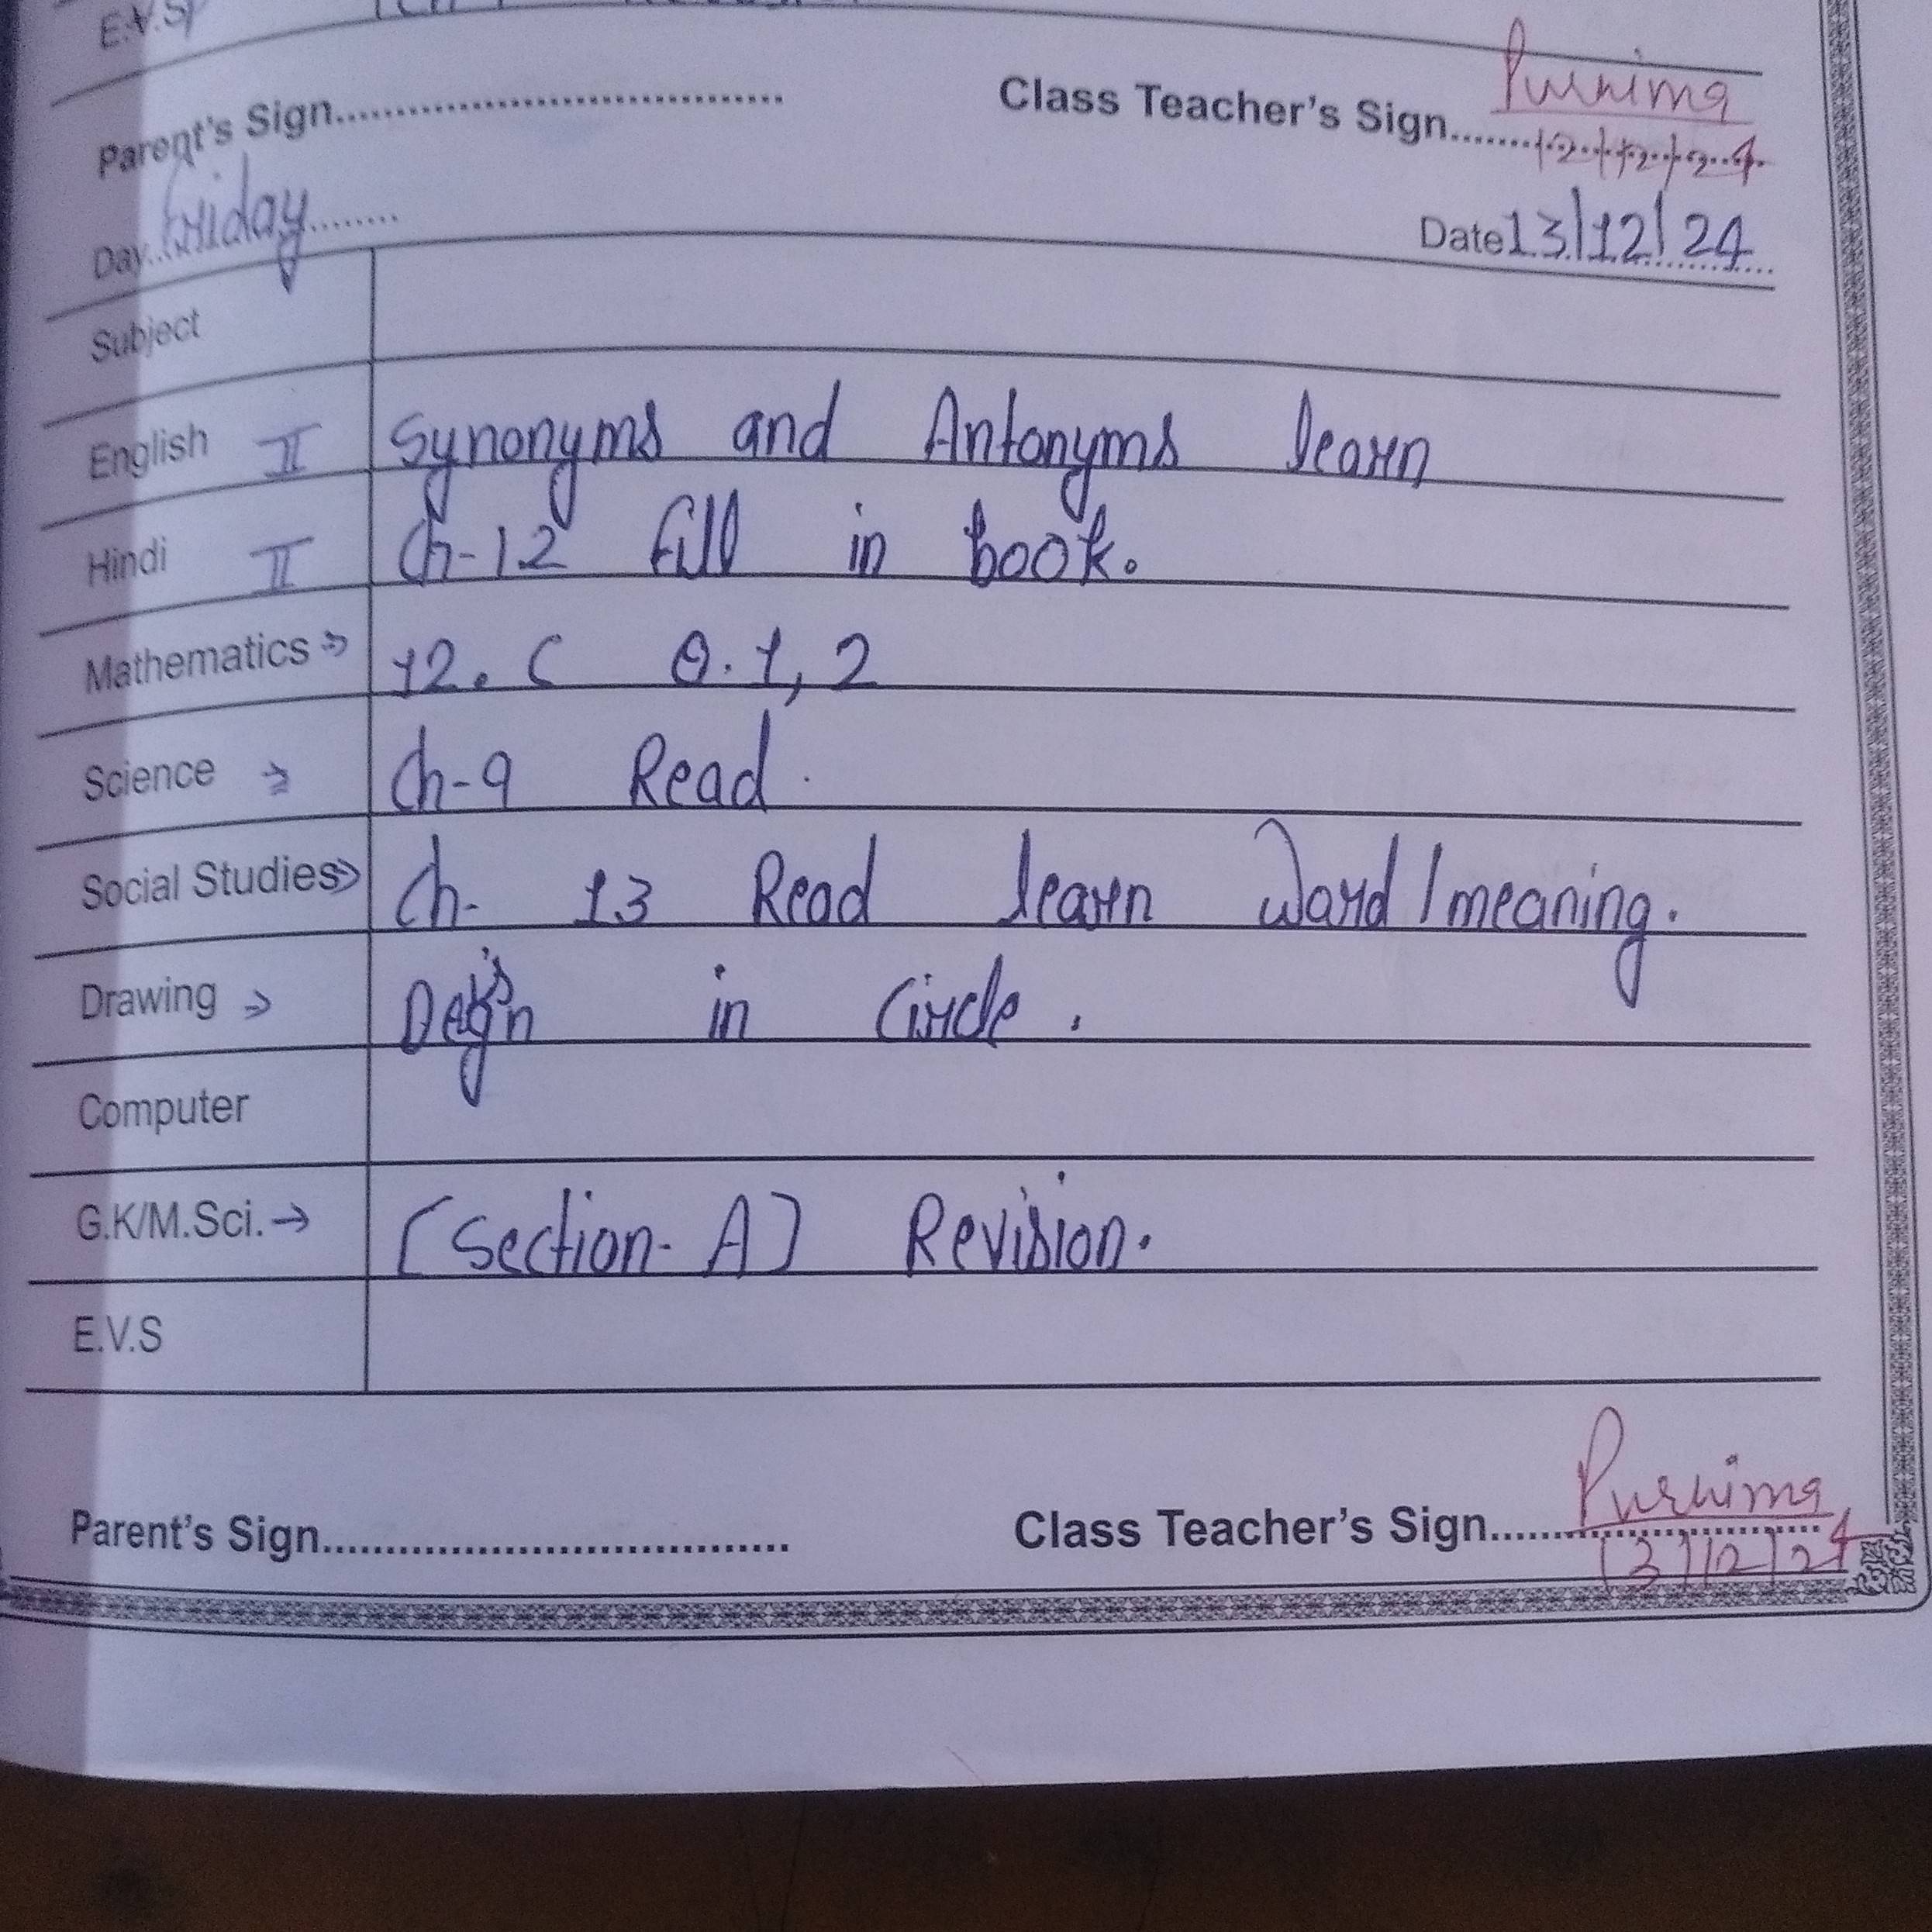 E.V.S
Parent's Sign................................ Class Teacher's Sign....... Purnima
12/12/24
Day..Friday........ Date 13/12/24
Subject
English II Synonyms and Antonyms learn
Hindi II Ch-12 fill in book.
Mathematics => 12. C Q.1,2
Science => Ch-9 Read.
Social Studies => Ch- 13 Read learn Word/meaning.
Drawing => in Circle.
Computer
G.K/M.Sci. → [Section- A] Revision.
E.V.S
Parent's Sign.................................... Class Teacher's Sign...... Purnima
13/12/24